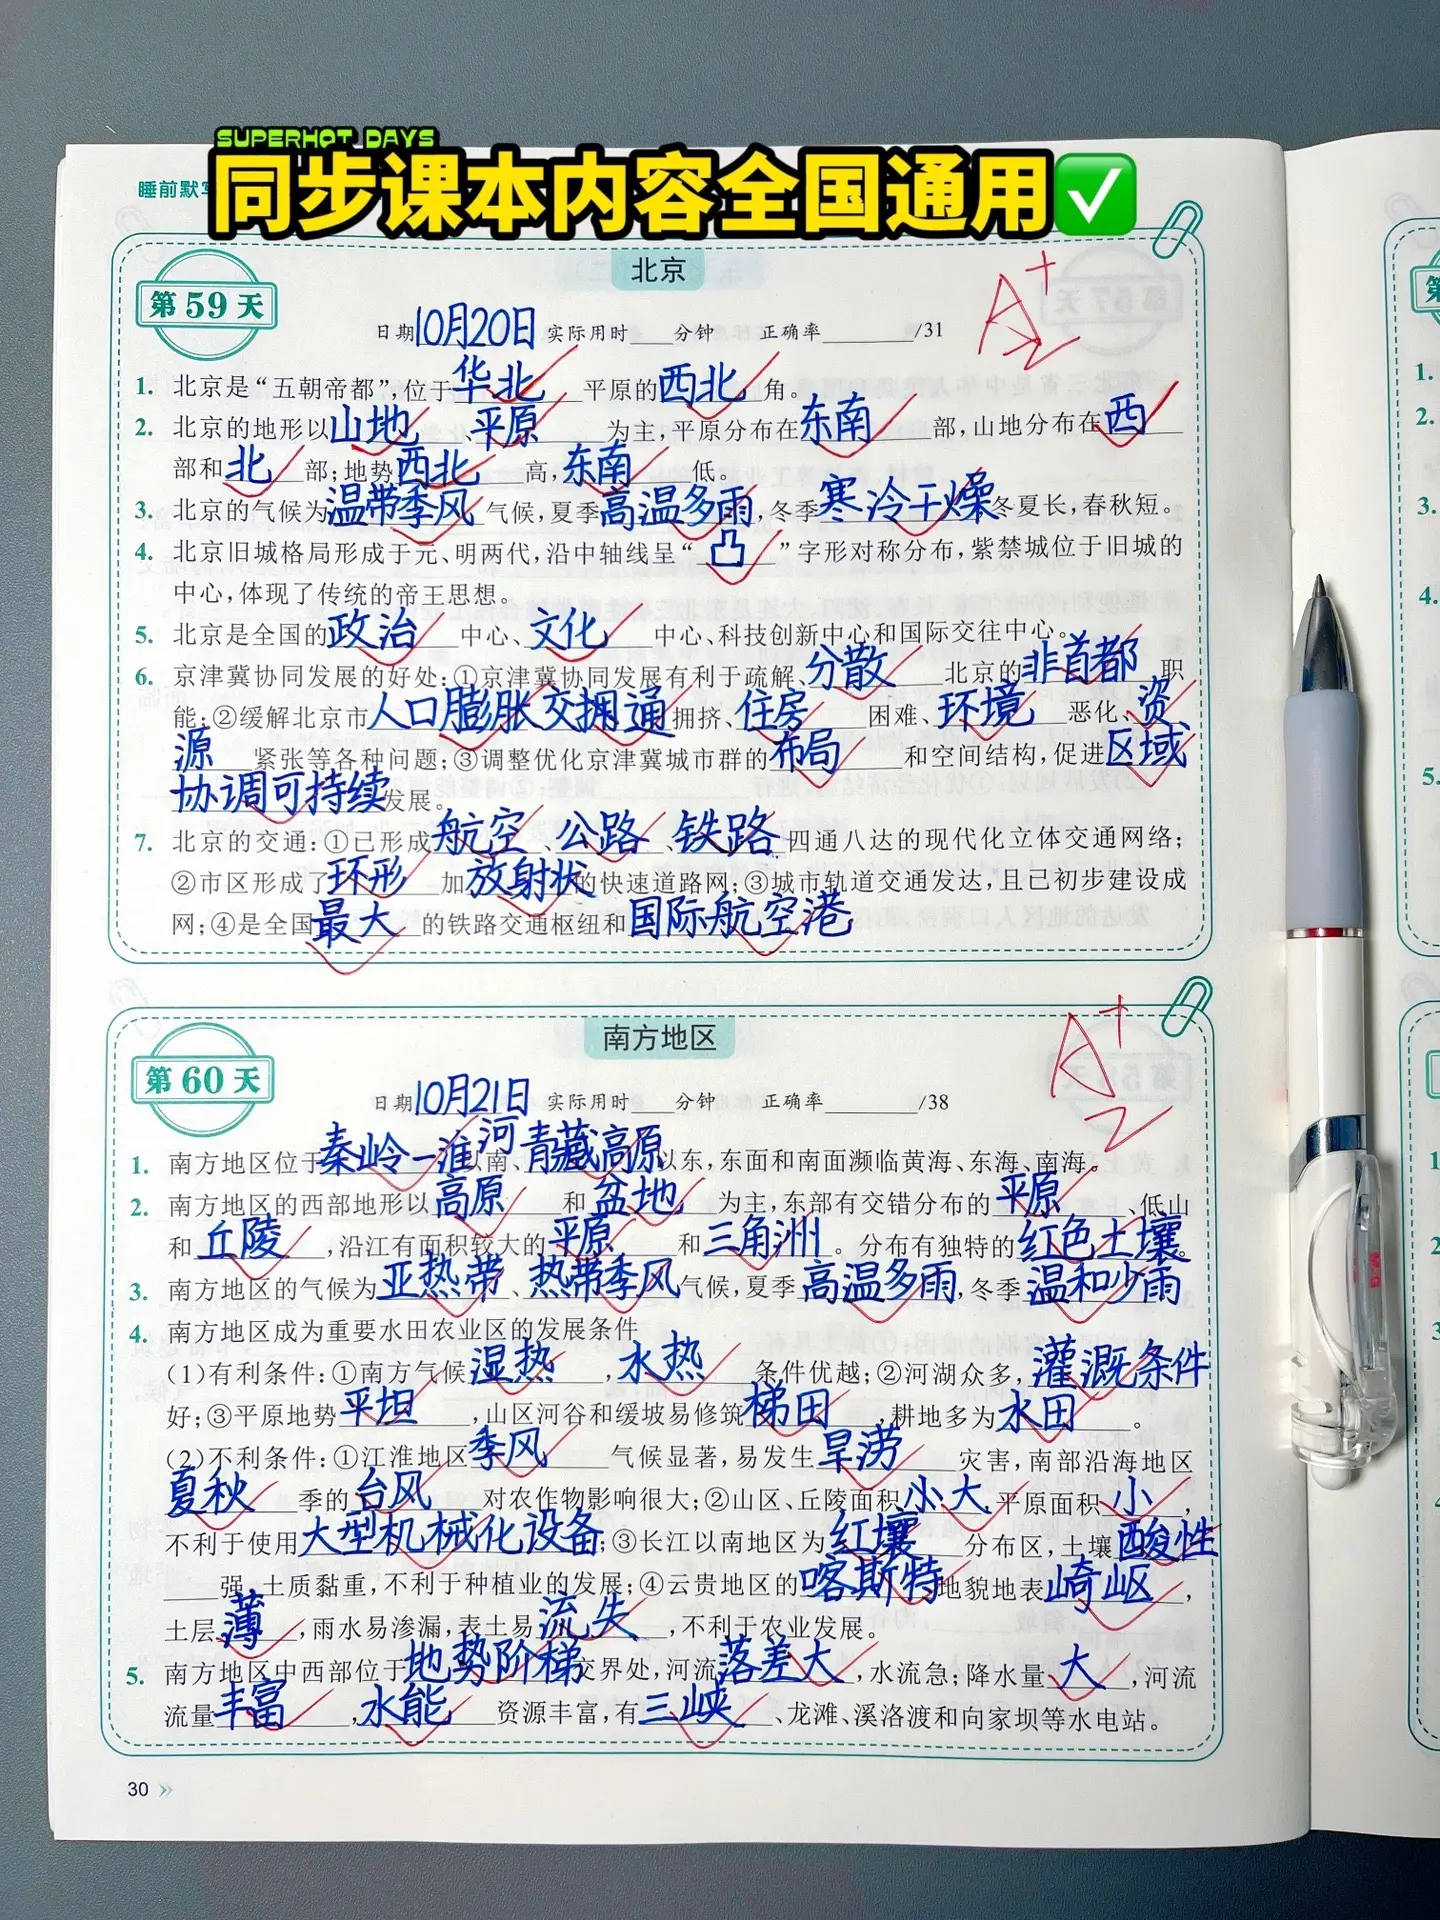 SUPERHOT DAYS
同步课本内容全国通用✅
睡前默写
北京
第59天
日期10月20日 实际用时____分钟 正确率______/31
1. 北京是“五朝帝都”,位于华北平原的西北角。
2. 北京的地形以山地、平原为主,平原分布在东南部,山地分布在西
部和北部;地势西北高,东南低。
3. 北京的气候为温带季风气候,夏季高温多雨,冬季寒冷干燥冬夏长,春秋短。
4. 北京旧城格局形成于元、明两代,沿中轴线呈“凸”字形对称分布,紫禁城位于旧城的
中心,体现了传统的帝王思想。
5. 北京是全国的政治中心、文化中心、科技创新中心和国际交往中心。
6. 京津冀协同发展的好处:①京津冀协同发展有利于疏解、分散北京的非首都职
能;②缓解北京市人口膨胀交拥通拥挤、住房困难、环境恶化、资
源紧张等各种问题;③调整优化京津冀城市群的布局和空间结构,促进区域
协调可持续发展。
7. 北京的交通:①已形成航空、公路、铁路四通八达的现代化立体交通网络;
②市区形成了环形加放射状的快速道路网;③城市轨道交通发达,且已初步建设成
网;④是全国最大的铁路交通枢纽和国际航空港
南方地区
第60天
日期10月21日 实际用时____分钟 正确率______/38
1. 南方地区位于秦岭—淮河以南、青藏高原以东,东面和南面濒临黄海、东海、南海。
2. 南方地区的西部地形以高原和盆地为主,东部有交错分布的平原、低山
和丘陵,沿江有面积较大的平原和三角洲。分布有独特的红色土壤。
3. 南方地区的气候为亚热带、热带季风气候,夏季高温多雨,冬季温和少雨
4. 南方地区成为重要水田农业区的发展条件
(1)有利条件:①南方气候湿热,水热条件优越;②河湖众多,灌溉条件
好;③平原地势平坦,山区河谷和缓坡易修筑梯田,耕地多为水田。
(2)不利条件:①江淮地区季风气候显著,易发生旱涝灾害,南部沿海地区
夏秋季的台风对农作物影响很大;②山区、丘陵面积大,平原面积小,
不利于使用大型机械化设备;③长江以南地区为红壤分布区,土壤酸性
强,土质黏重,不利于种植业的发展;④云贵地区的喀斯特地貌地表崎岖,
土层薄,雨水易渗漏,表土易流失,不利于农业发展。
5. 南方地区中西部位于地势阶梯交界处,河流落差大,水流急;降水量大,河流
流量丰富,水能资源丰富,有三峡、龙滩、溪洛渡和向家坝等水电站。
30